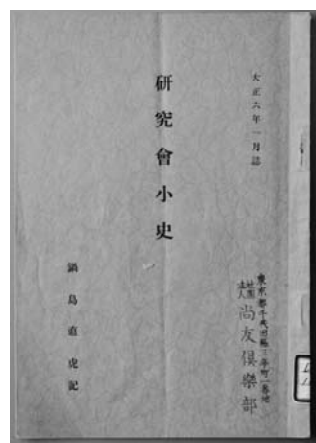 大正六年一月誌
研究會小史
鍋島直虎記
東京都千代田區三年町一番地
社團法人
尚友倶樂部